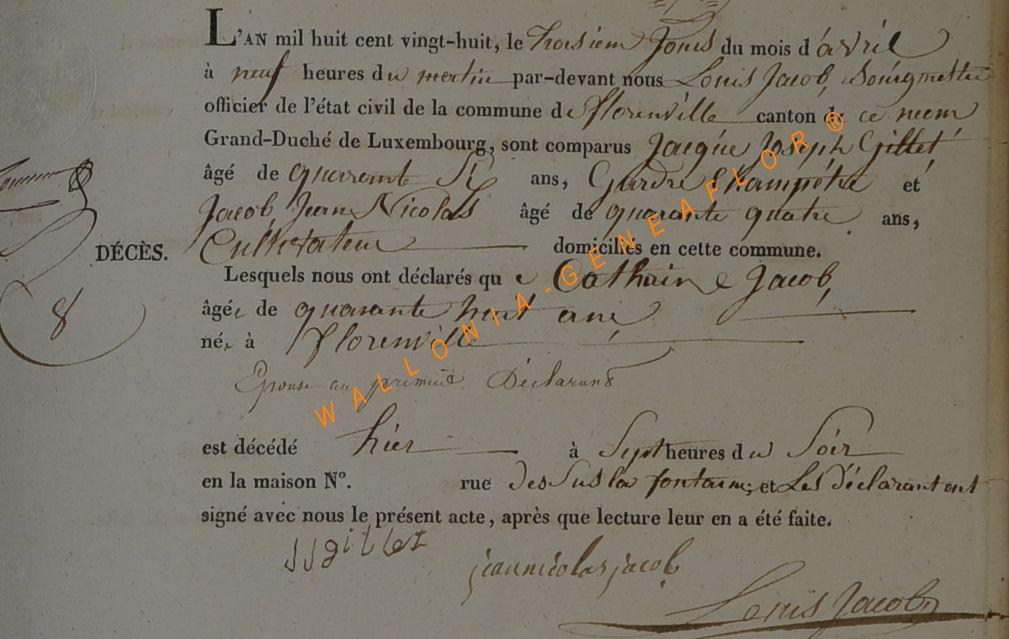 L'AN mil huit cent vingt-huit, le troisiem Jour du mois d'avril
à neuf heures du matin par-devant nous Louis Jacob, Bourgmestre
officier de l'état civil de la commune de florenville canton de ce nom
Grand-Duché de Luxembourg, sont comparus Jacque Joseph Gillet
âgé de quarrent Si ans, Gardre Champétre et
Jacob Jean Nicolas âgé de quarante quatre ans,
DÉCÈS. Cultivateur domiciliés en cette commune.
Lesquels nous ont déclarés que Cathrine Jacob,
âgée de quarante huit ans
8
née à florenville
Epouse au premier Déclarant
WALLONIA-GENEAFLOR®
est décédé hier à Sept heures du Soir
en la maison N°. rue desSus la fontaine, et Les déclarant ont
signé avec nous le présent acte, après que lecture leur en a été faite.
JJgillet
jeannicolasjacob
Louis Jacob